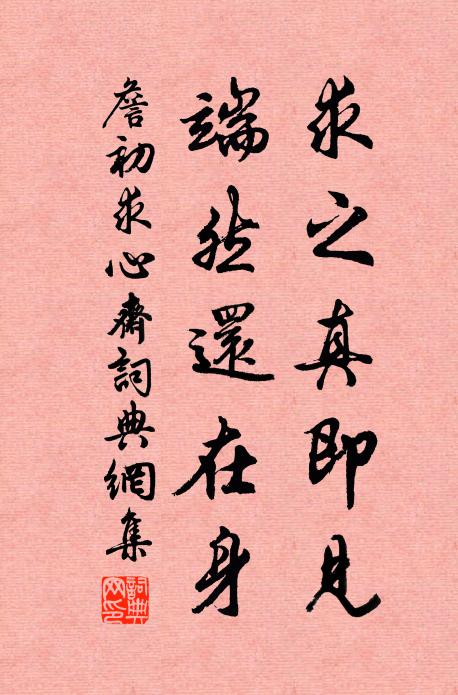 求之真即見
端然還在身
詹初求心齋詞典網集
詞典
网印